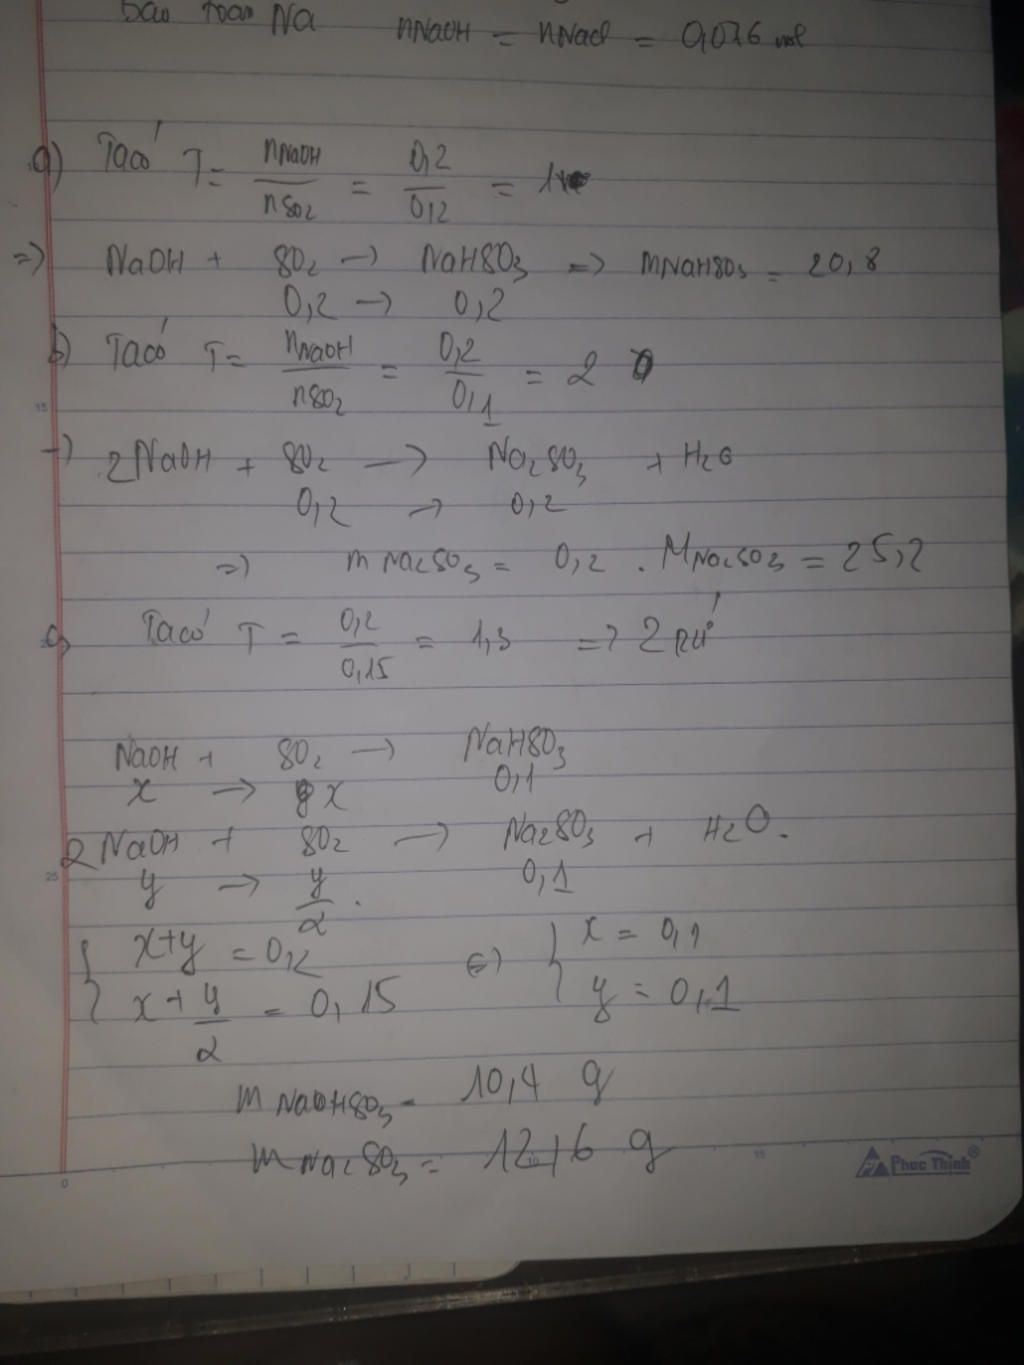 Bảo toàn Na nNaOH = nNaCl = 0,076 mol
a) Ta có T = nNaOH / nSO2 = 0,2 / 0,2 = 1
=> NaOH + SO2 -> NaHSO3 => mNaHSO3 = 20,8
0,2 -> 0,2
b) Ta có T = nNaOH / nSO2 = 0,2 / 0,1 = 2
-> 2NaOH + SO2 -> Na2SO3 + H2O
0,2 -> 0,2
=> m Na2SO3 = 0,2 . MNa2SO3 = 25,2
c) Ta có T = 0,2 / 0,15 = 1,3 => 2 pứ
NaOH + SO2 -> NaHSO3
x -> x 0,1
2NaOH + SO2 -> Na2SO3 + H2O.
y -> y/2 . 0,1
{ x+y = 0,2 <=> { x = 0,1
x + y/2 = 0,15 y = 0,1
m NaHSO3 = 10,4 g
m Na2SO3 = 12,6 g
15
25
0
10
15
Phuc Thinh®